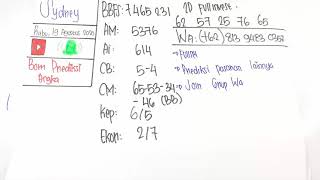 Sydney
Rabu, 13 Agustus 2025
Bom Prediksi
Angka
BBFS: 7465231
AM: 5376
Ai: 614
CB: 5-4
CM: 65-53-34-
-46 (BB)
Kep: 6/5
Ekor: 2/7
2D Fullinvest
62 57 25 76 65
• Prediksi pasaran lainnya
• Join Grup Wa